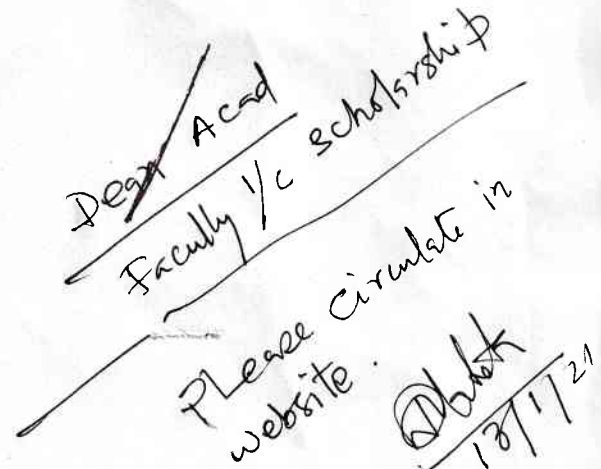 Dean Acad
Faculty I/c scholarship
Please circulate in
website.
13/1/21